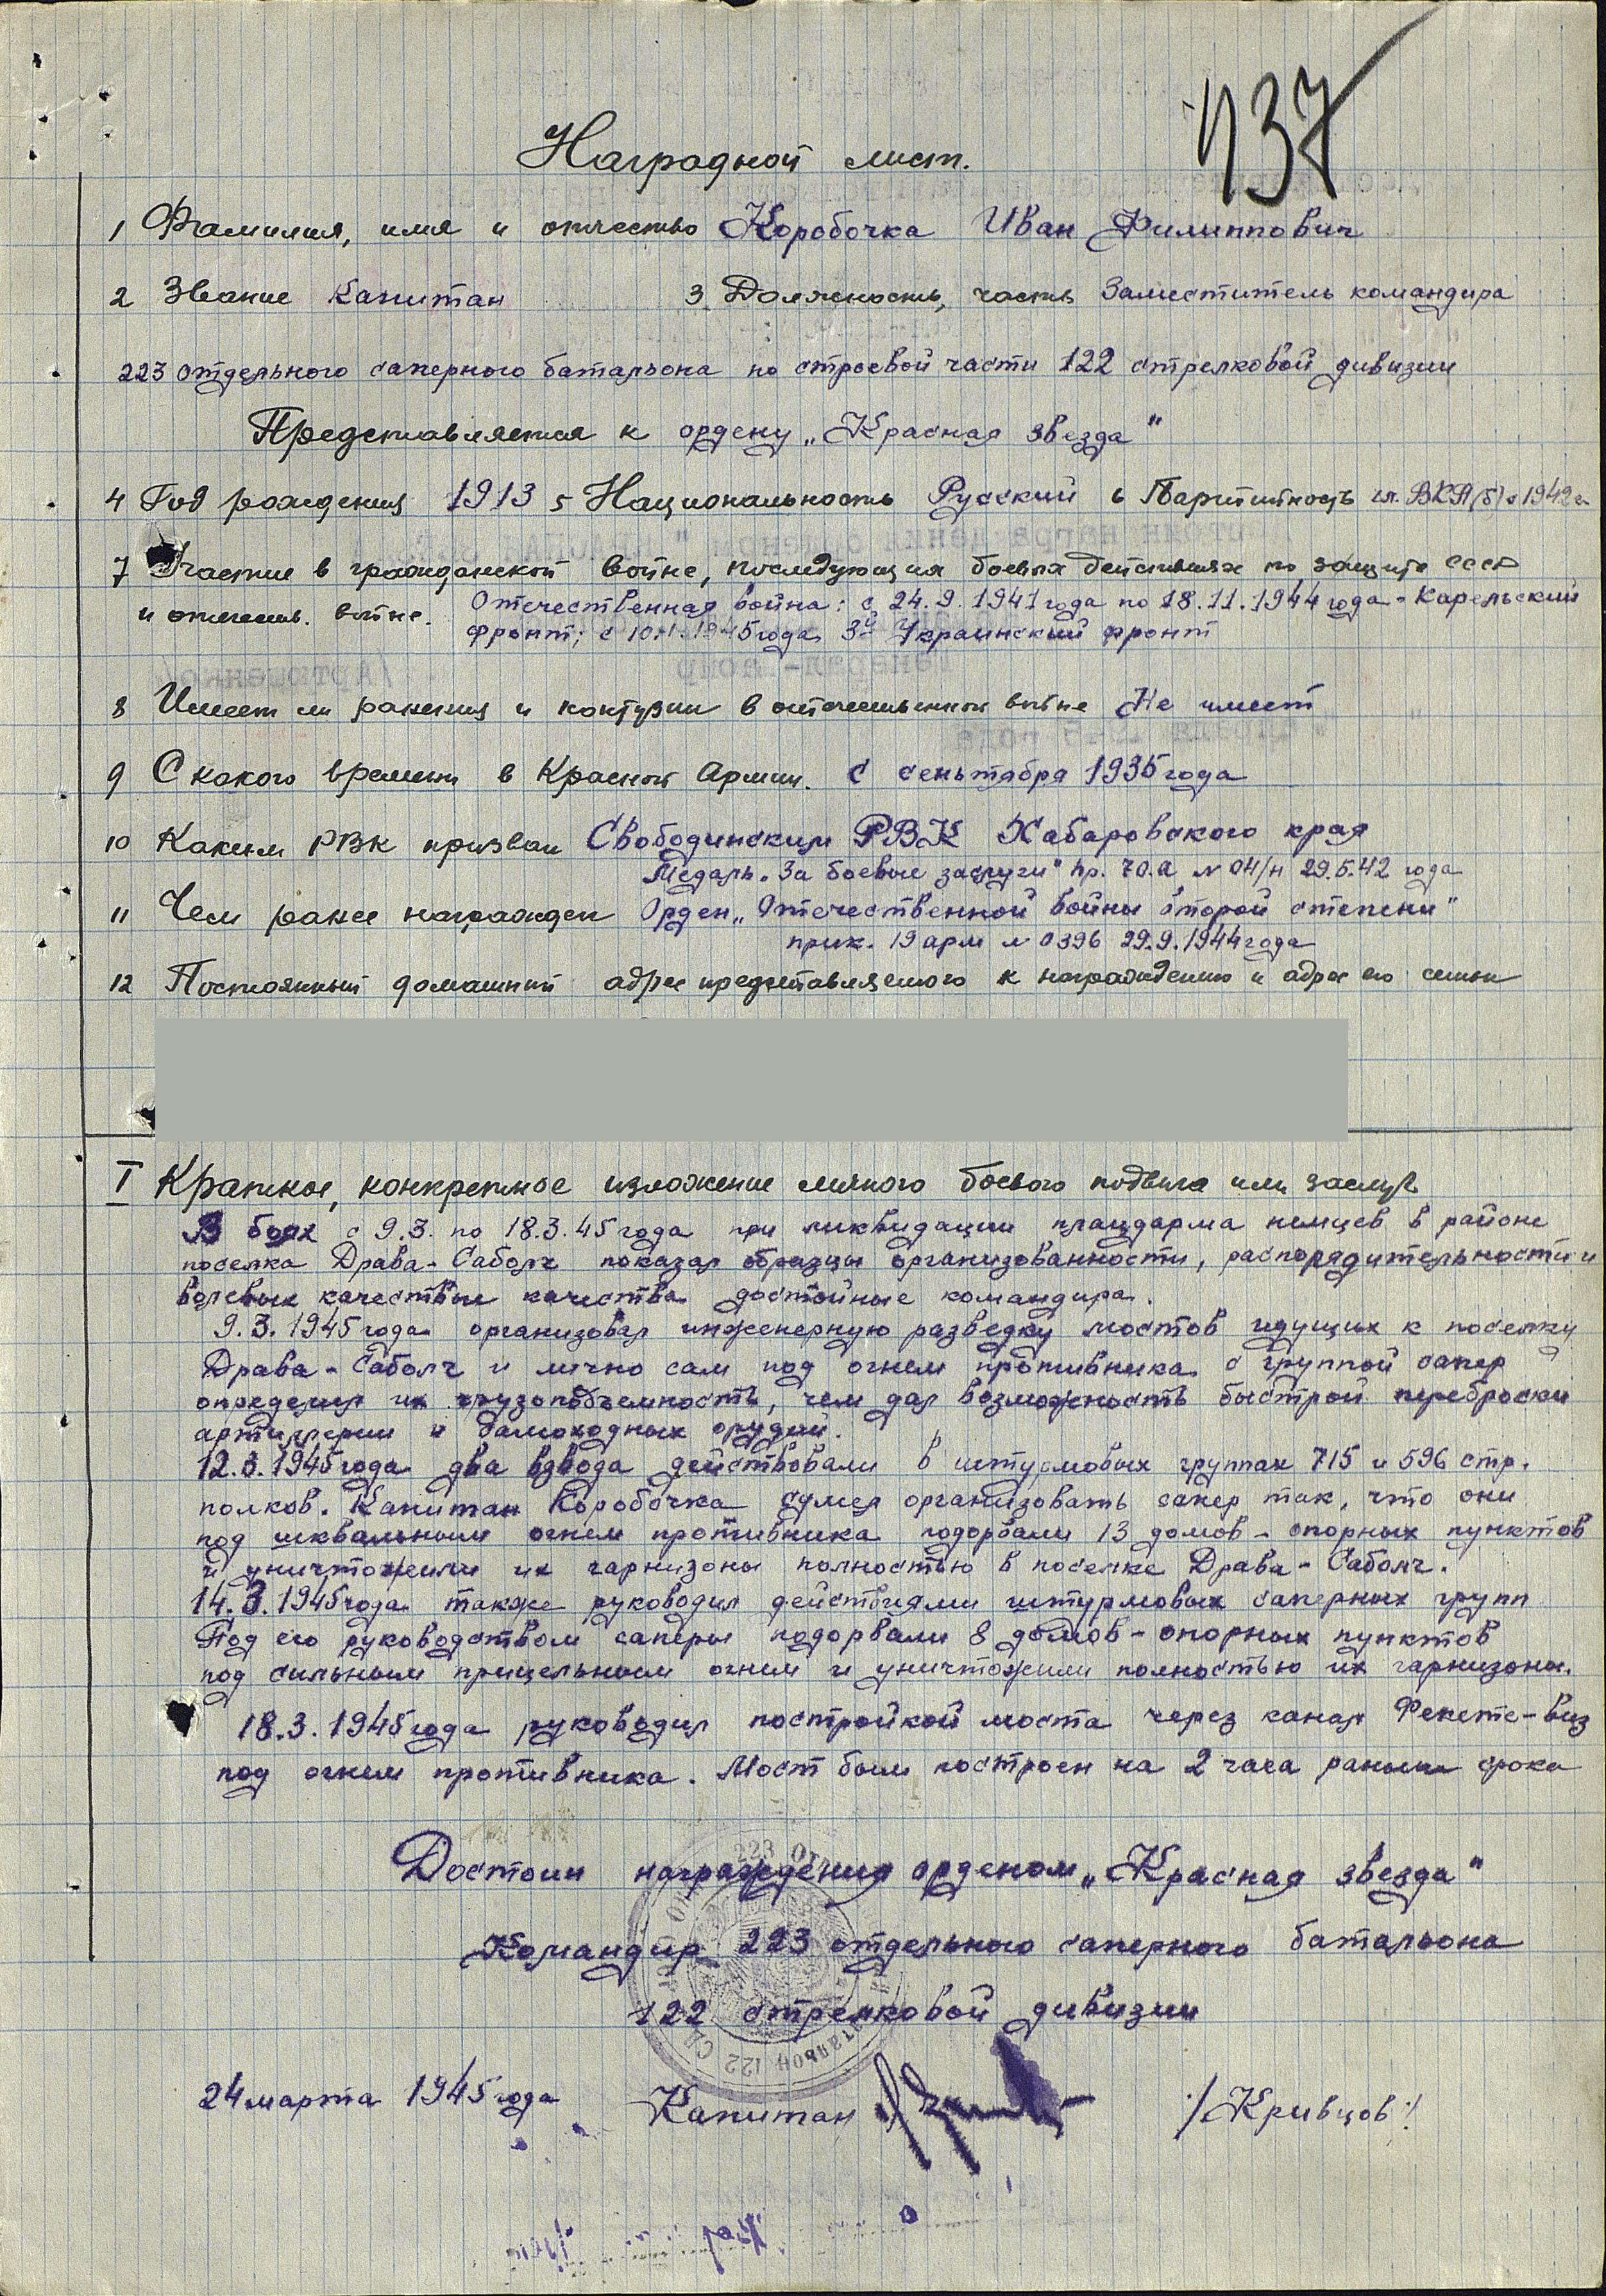 437
Наградной лист.
1 Фамилия, имя и отчество Коробочка Иван Филиппович
2 Звание Капитан 3 Должность, часть Заместитель командира
223 отдельного саперного батальона по строевой части 122 стрелковой дивизии
Представляется к ордену „Красная звезда"
4 Год рождения 1913 5 Национальность Русский 6 Партийность чл. ВКП(б) с 1942 г.
7 Участие в гражданской войне, последующих боевых действиях по защите СССР
и отечеств. войне. Отечественная война: с 24.9.1941 года по 18.11.1944 года - Карельский
фронт; с 10.1.1945 года 3й Украинский фронт
8 Имеет ли ранения и контузии в отечественной войне Не имеет
9 С какого времени в Красной Армии. С сеньтября 1935 года
10 Каким РВК призван Свободинским РВК Хабаровского края
Медаль „За боевые заслуги" пр. 70.А № 04/н 29.5.42 года
11 Чем ранее награжден Орден „Отечественной войны второй степени"
прик. 19 арм № 0396 29.9.1944 года
12 Постоянный домашний адрес представляемого к награждению и адрес его семьи
I Краткое, конкретное изложение личного боевого подвига или заслуг
В боях с 9.3. по 18.3.45 года при ликвидации плацдарма немцев в районе
поселка Драва-Саболч показал образцы организованности, распорядительности и
волевые качествые качества достойные командира.
9.3.1945 года организовал инженерную разведку мостов идущих к поселку
Драва-Саболч и лично сам под огнем противника с группой сапер
определил их грузоподъемность, чем дал возможность быстрой переброски
артиллерии и самоходных орудий.
12.3.1945 года два взвода действовали в штурмовых группах 715 и 596 стр.
полков. Капитан Коробочка сумел организовать сапер так, что они
под шквальным огнем противника подорвали 13 домов - опорных пунктов
и уничтожили их гарнизоны полностью в поселке Драва-Саболч.
14.3.1945 года также руководил действиями штурмовых саперных групп
Под его руководством саперы подорвали 8 домов - опорных пунктов
под сильным прицельным огнем и уничтожили полностью их гарнизоны.
18.3.1945 года руководил постройкой моста через канал Фекете-виз
под огнем противника. Мост был построен на 2 часа раньше срока
Достоин награждения орденом „Красная звезда"
Командир 223 отдельного саперного батальона
122 стрелковой дивизии
24 марта 1945 года Капитан /Кривцов/